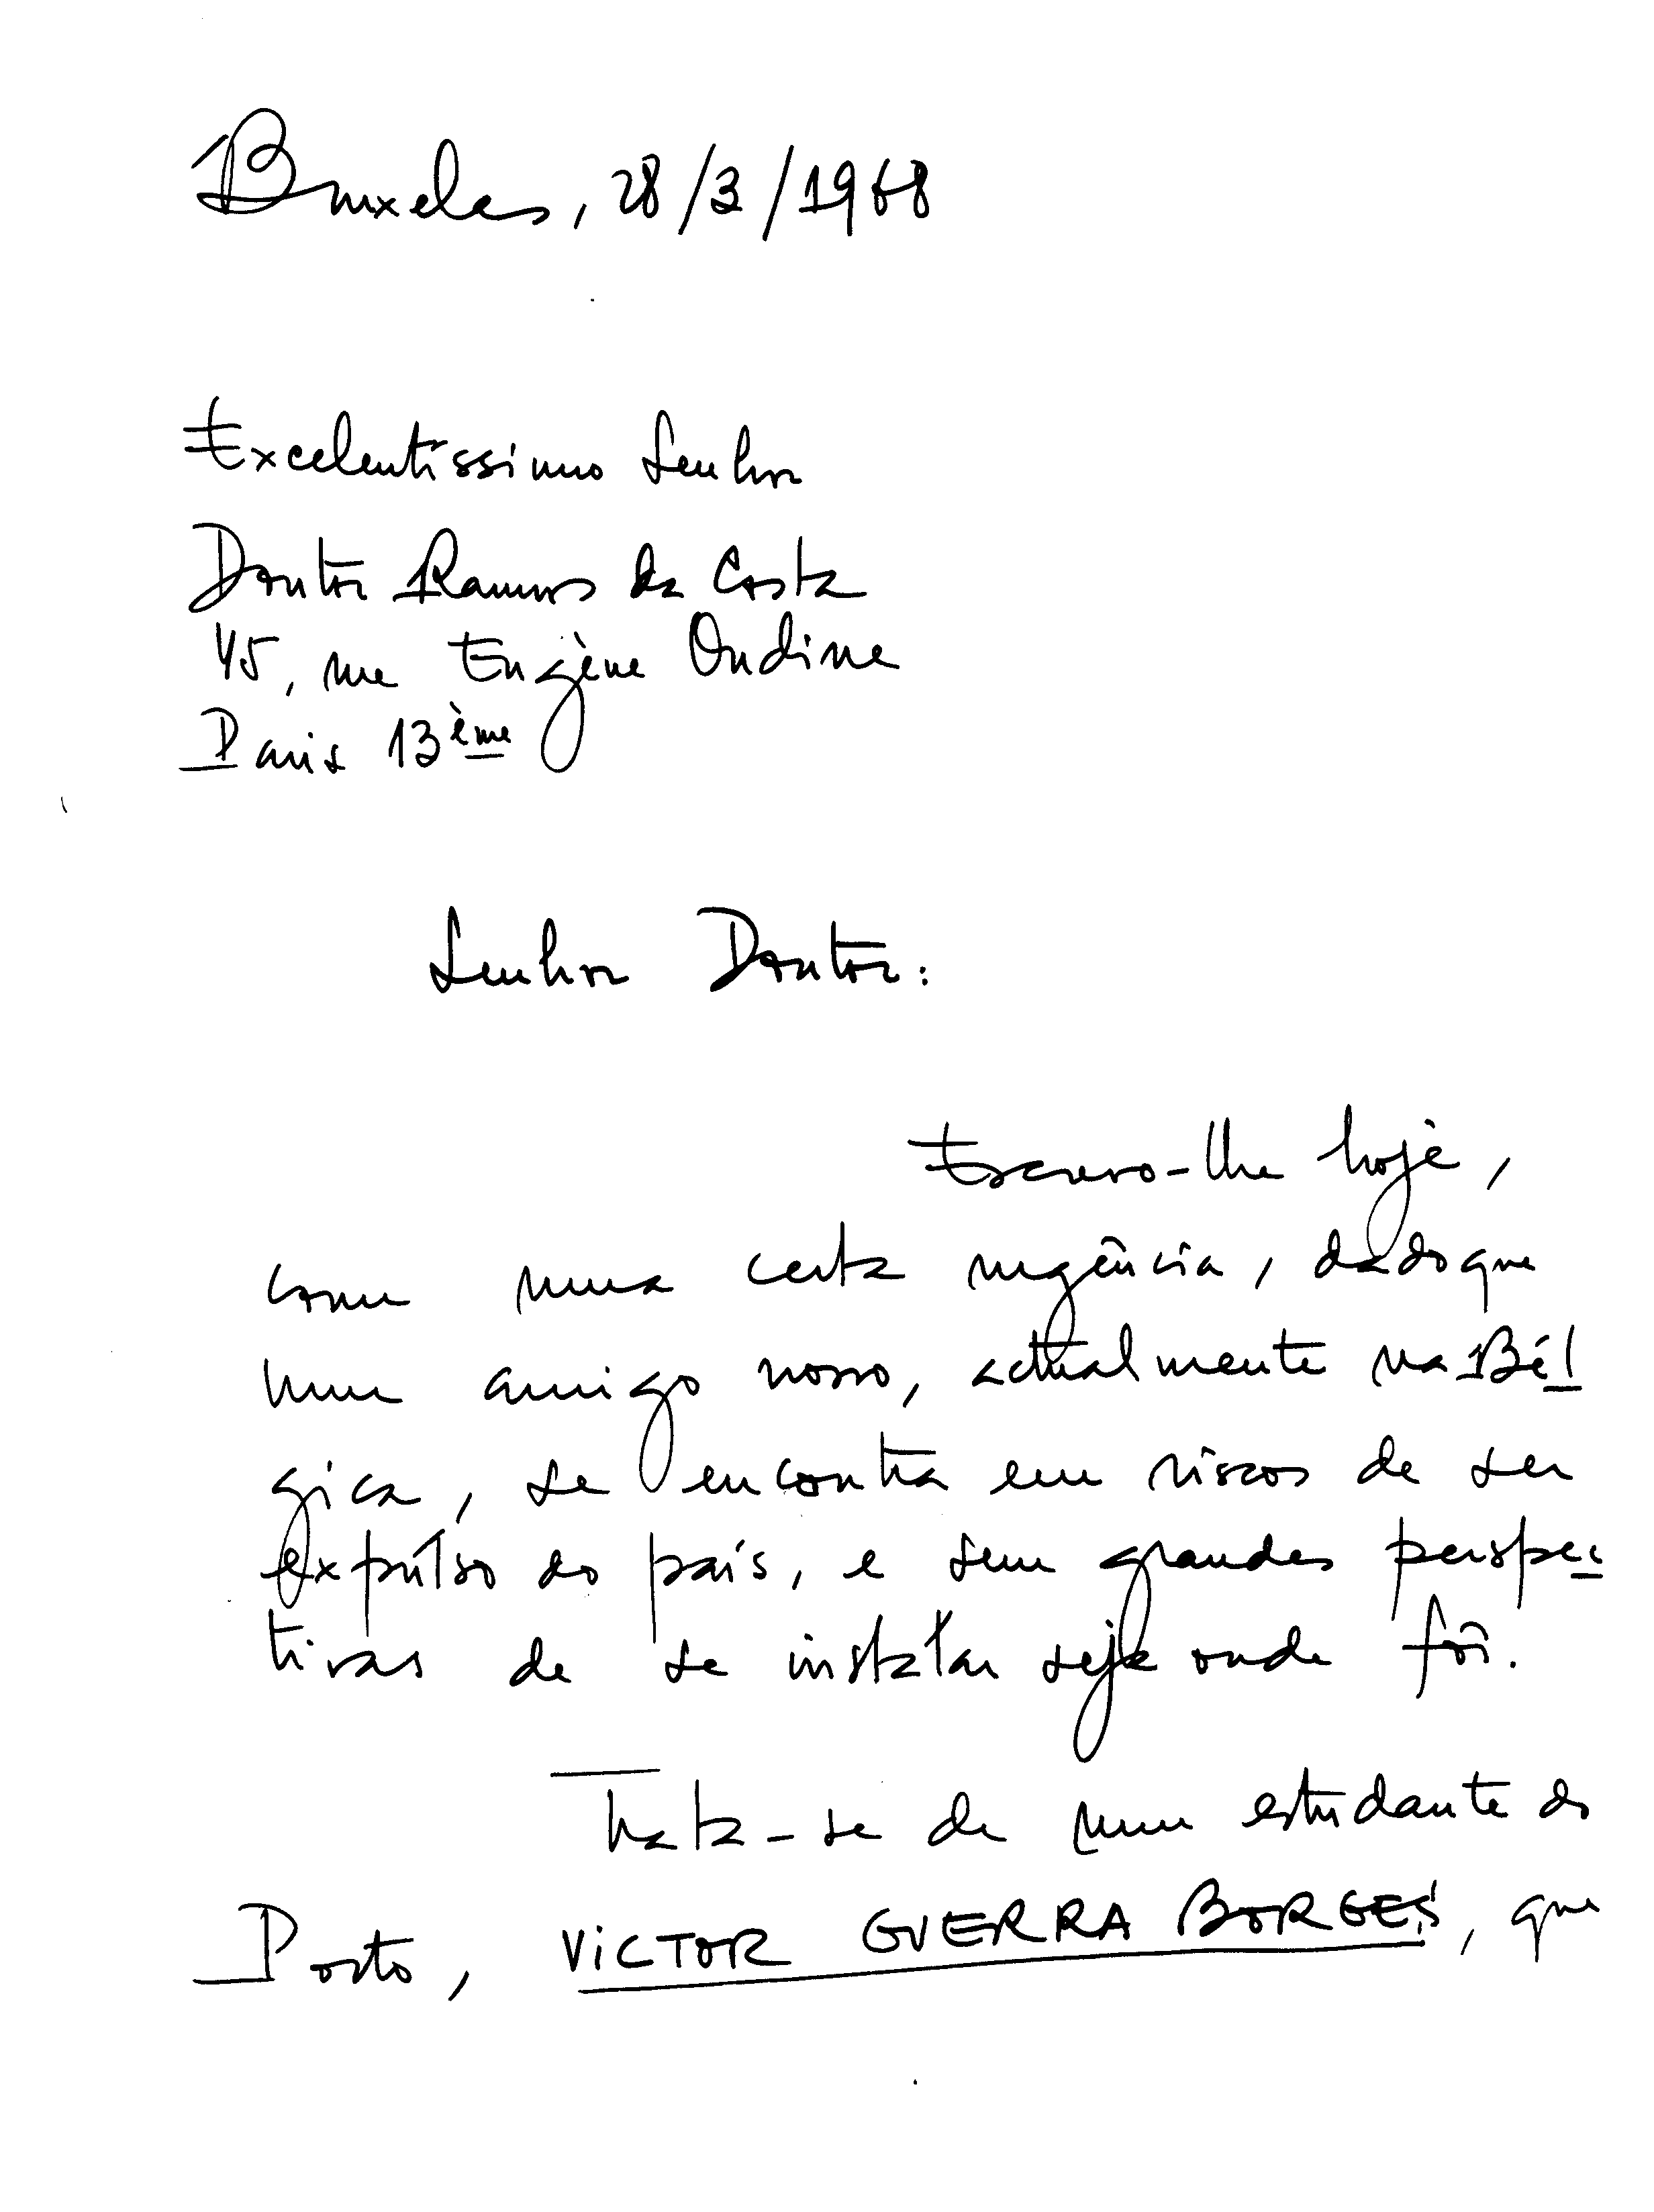 Bruxelas, 28/3/1968
Excelentíssimo Senhor
Doutor Ramos da Costa
45, rue Eugène Oudine
Paris 13ème
Senhor Doutor:
Escrevo-lhe hoje,
com uma certa urgência, dado que
um amigo nosso, actualmente na Bél
gica, se encontra em riscos de ser
expulso do país, e sem grandes perspec
tivas de se instalar seja onde fôr.
Trata-se de um estudante do
Porto, VICTOR GUERRA BORGES, que